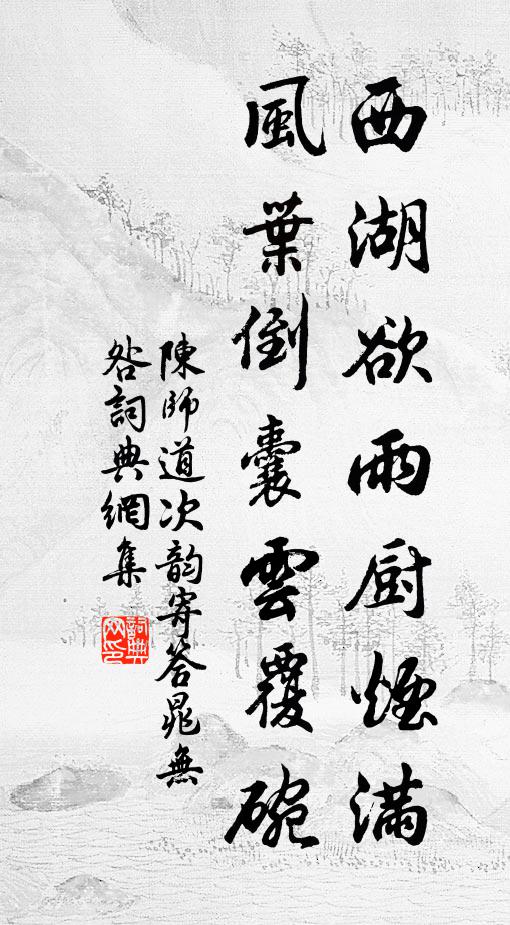 西湖欲雨厨煙滿
風葉倒囊雲覆碗
陳師道次韵寄答晁無
咎詞典網集
詞典
网印